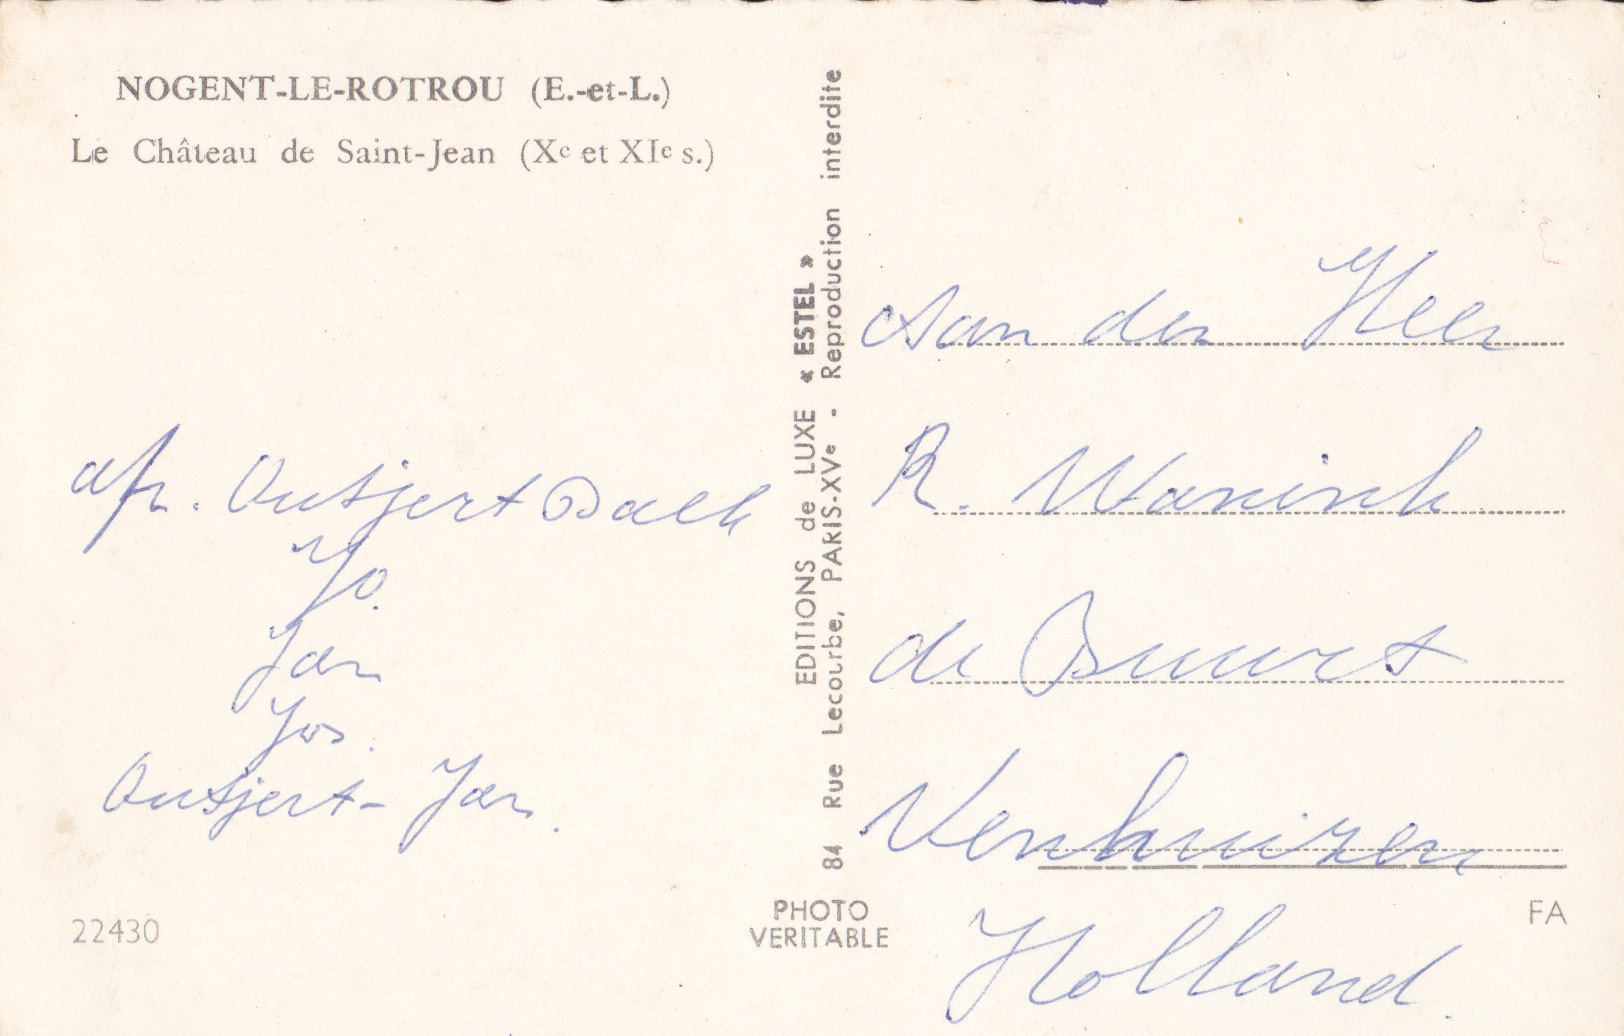 NOGENT-LE-ROTROU (E.-et-L.)
Le Château de Saint-Jean (Xe et XIe s.)
afz. Outjert Dall
Jo.
Jan
Jos.
Outjert-Jan.
22430
EDITIONS de LUXE « ESTEL »
84 Rue Lecourbe, PARIS-XVe - Reproduction interdite
PHOTO
VERITABLE
Aan den Heer
R.
de Buurt
Venhuizen
Holland.
FA